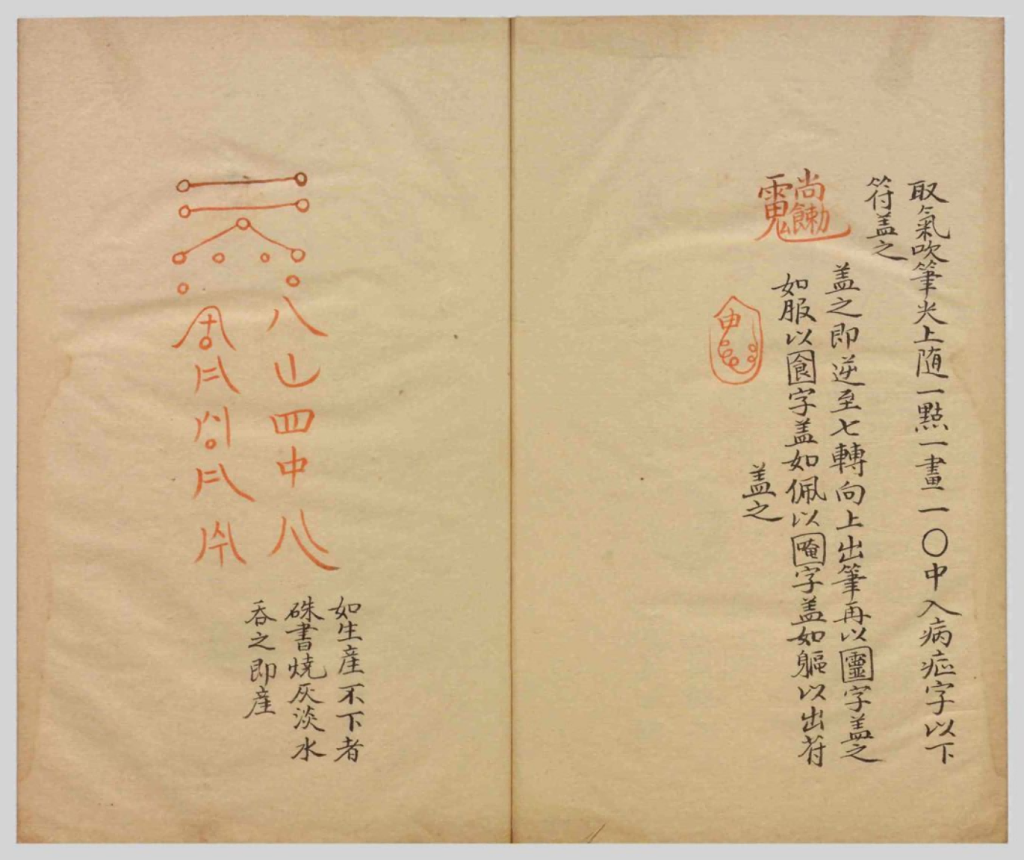 取氣吹筆尖上随一點一畫一〇中入病症字以下
符盖之
尚食勅
盖之即逆至七轉向上出筆再以靈字盖之
如服以食字盖如佩以唵字盖如軀以出符
盖之
申
八山四中八
如生産不下者
硃書燒灰淡水
吞之即産